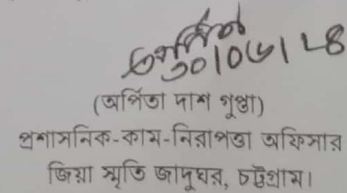 ৩০|০৬|২৪
(অর্পিতা দাশ গুপ্তা)
প্রশাসনিক-কাম-নিরাপত্তা অফিসার
জিয়া স্মৃতি জাদুঘর, চট্টগ্রাম।